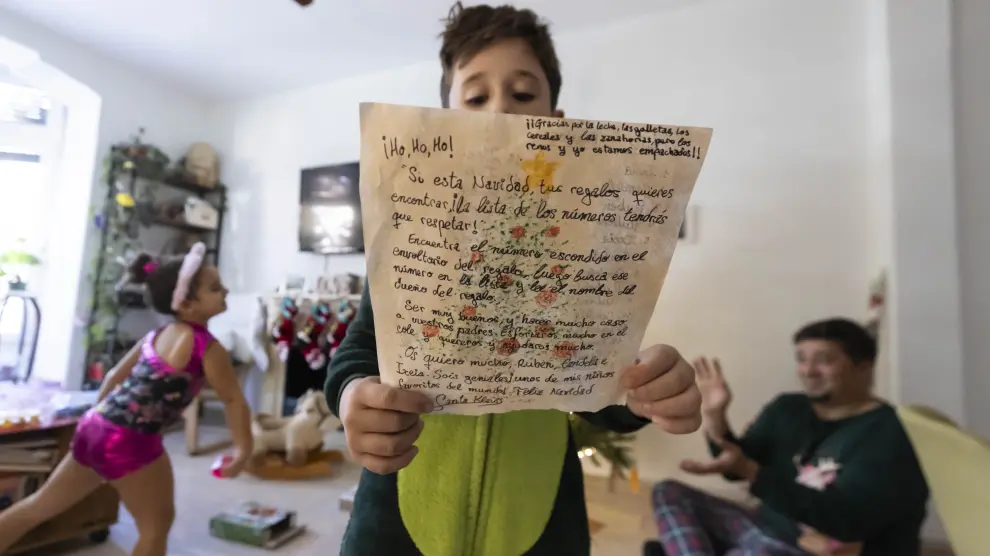 ¡Ho, Ho, Ho!
¡¡Gracias por la leche, las galletas, los
cereales y las zanahorias, pero los
renos y yo estamos empachados!!
Si esta Navidad, tus regalos quieres
encontrar, ¡la lista de los números tendrás
que respetar!
Encuentra el número escondido en el
envoltorio del regalo, luego busca ese
número en la lista y lee el nombre del
dueño del regalo.
Ser muy buenos y hacer mucho caso
a vuestros padres. Esforzaros mucho en el
cole y quereros y ayudaros mucho.
Os quiero mucho, Rubén, Candela e
Izeta. Sois geniales! unos de mis niños
favoritos del mundo! Feliz Navidad
Santa Klaus